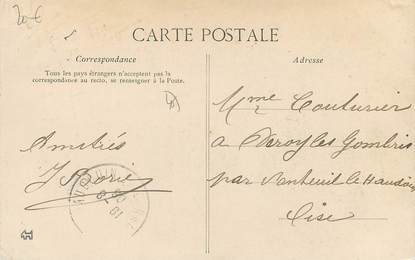 20€
CARTE POSTALE
Correspondance
Tous les pays étrangers n'acceptent pas la
correspondance au recto, se renseigner à la Poste.
Adresse
Mme Couturier
a Peroy les Gombris
par Nanteuil le Haudoin
Oise
Amitiés